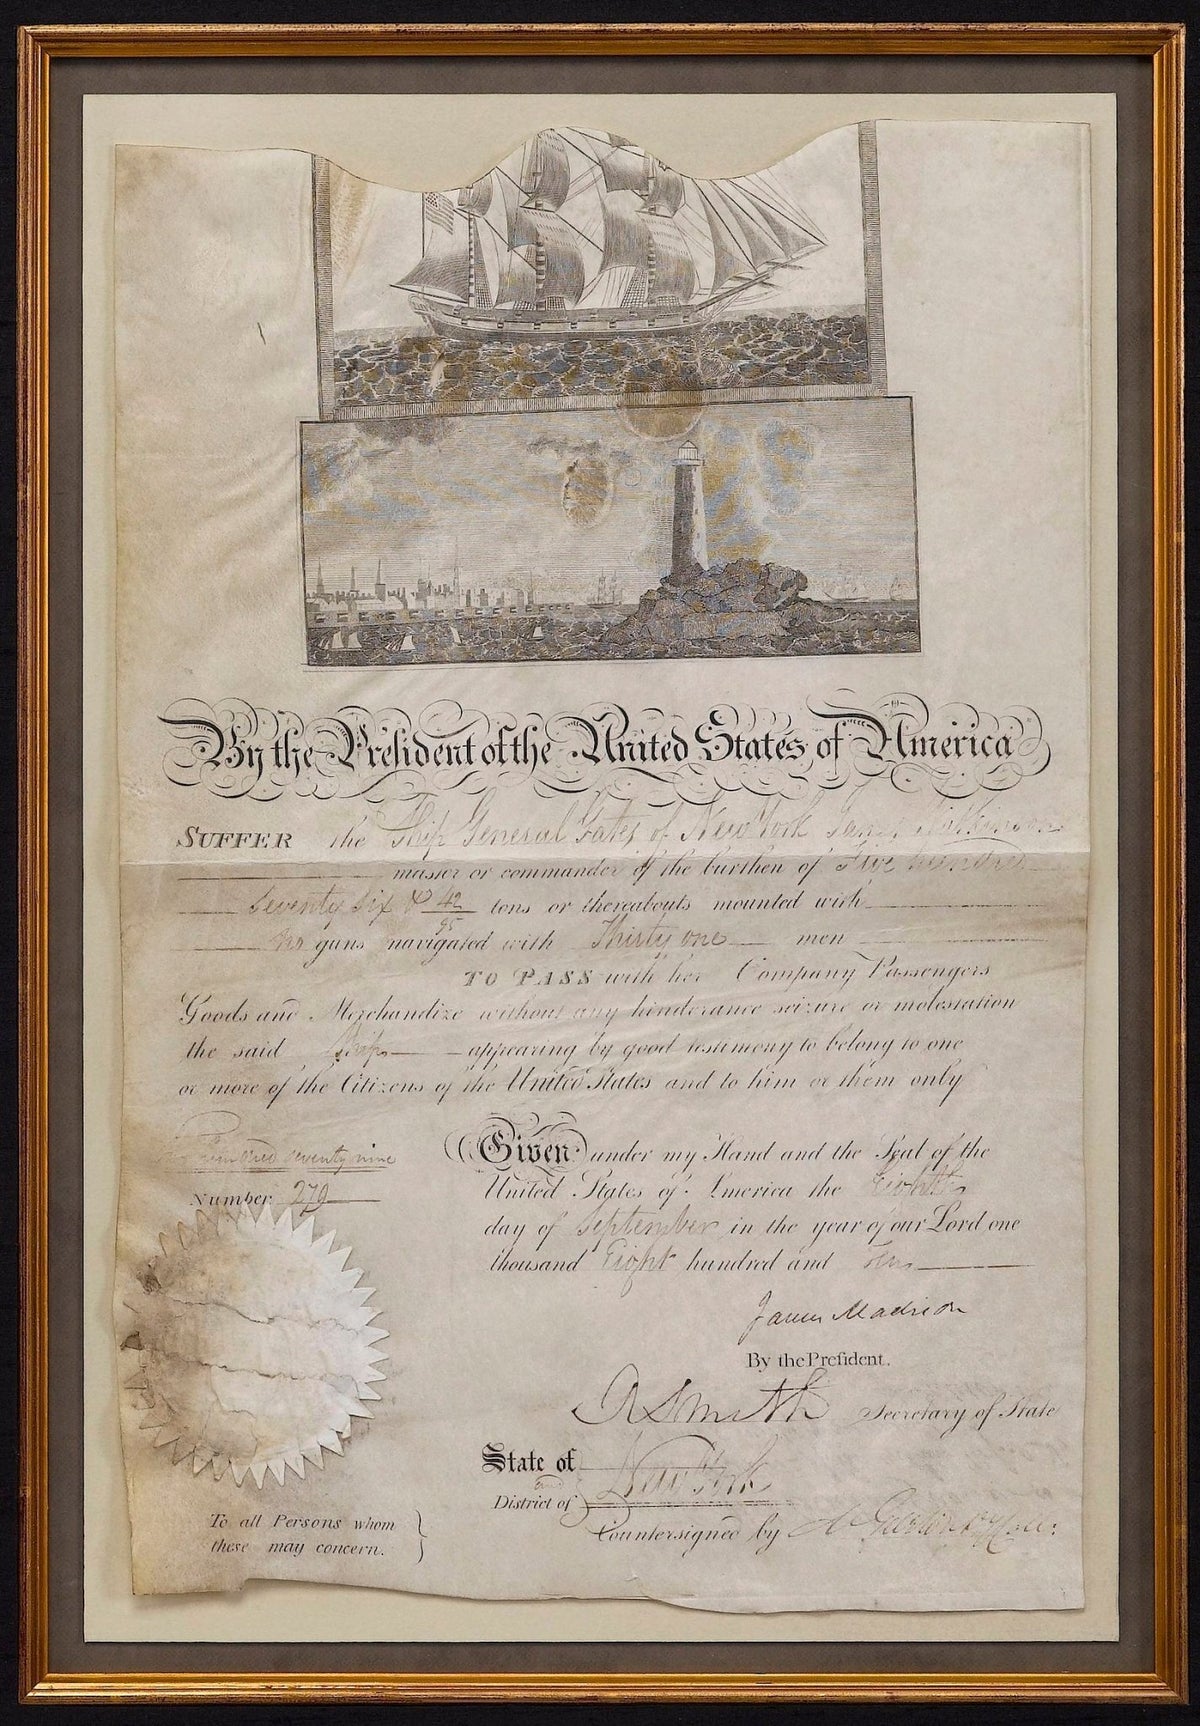 By the President of the United States of America
SUFFER the Ship General Gates of New York Wilkinson
master or commander of the burthen of Five hundred
Seventy Six & 42/95 tons or thereabouts mounted with
no guns navigated with Thirty one men
TO PASS with her Company Passengers
Goods and Merchandize without any hinderance seizure or molestation
the said Ship appearing by good testimony to belong to one
or more of the Citizens of the United States and to him or them only
hundred seventy nine
Number 279
Given under my Hand and the Seal of the
United States of America the Eighth
day of September in the year of our Lord one
thousand Eight hundred and Ten
James Madison
By the President.
R Smith Secretary of State
State of
and New York
District of
Countersigned by
To all Persons whom
these may concern.